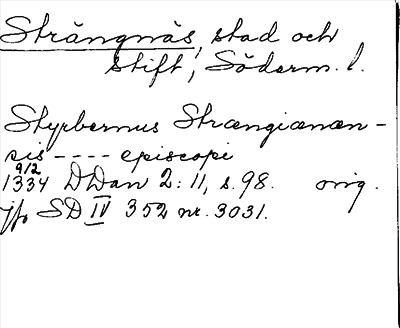 Strängnäs, stad och
stift, Söderm. l.
Styrbernus Strængianæn-
sis ---- episcopi
9/2
1334 DDan 2:11, s. 98. orig.
jfr SD IV 352 nr. 3031.